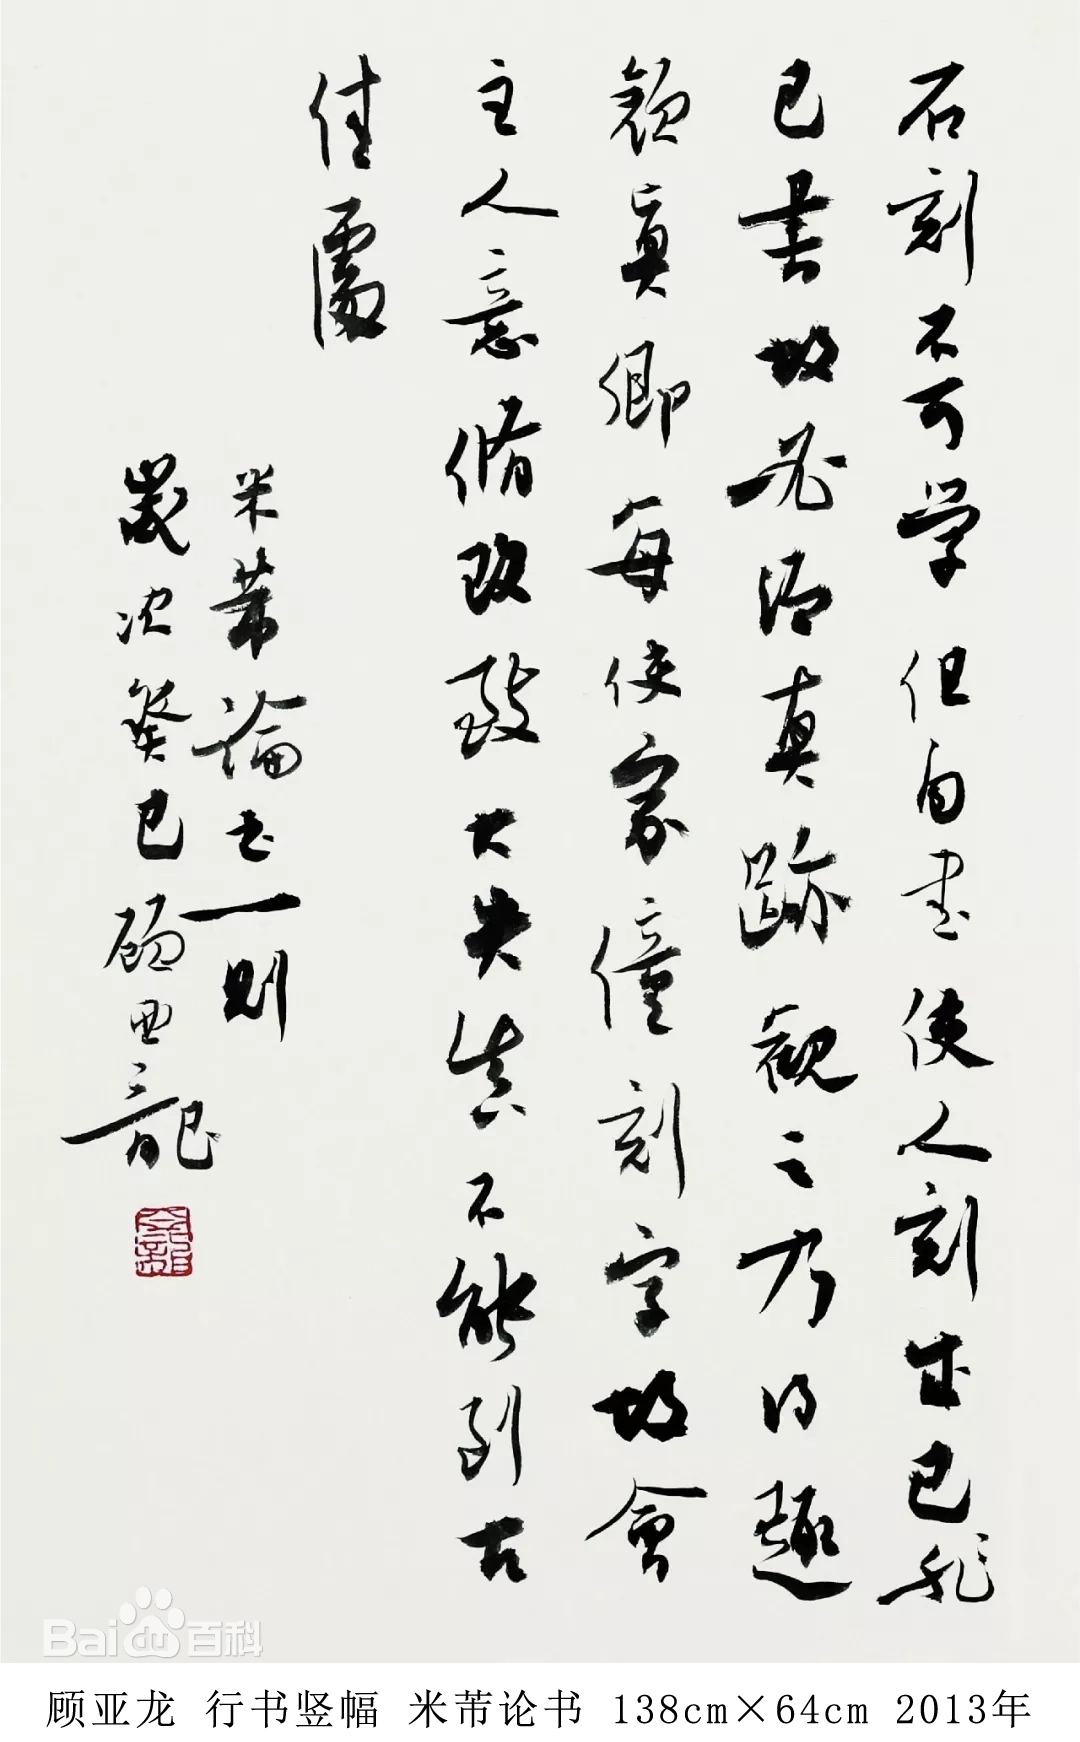 石刻不可学但自書使人刻已非
己書故必須真跡觀之乃得趣
顏真卿每使家僮刻字故會
主人意脩改致大失真不能到古
佳處
米芾論書一則
歲次癸巳顧亞龍
Bai百科
顾亚龙 行书竖幅 米芾论书 138cm×64cm 2013年